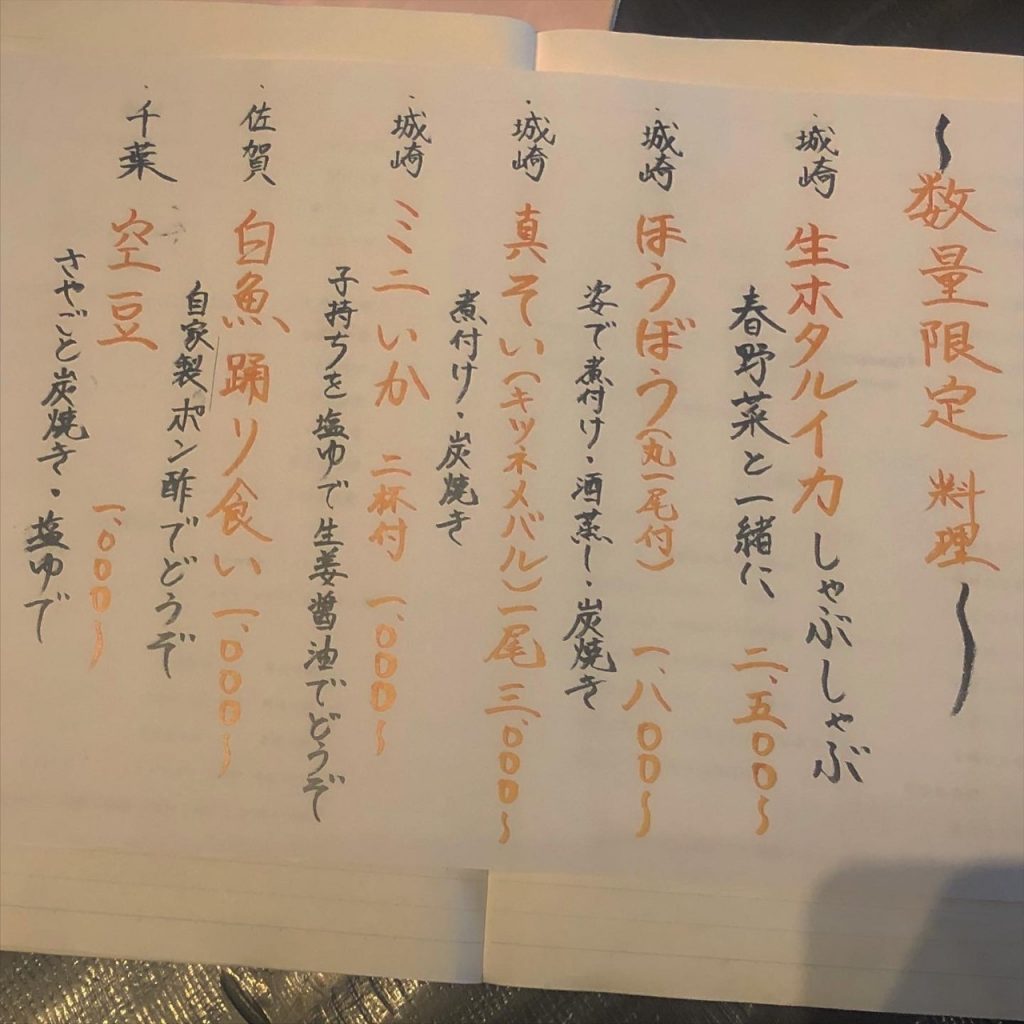 〜数量限定 料理〜
・城崎 生ホタルイカしゃぶしゃぶ
春野菜と一緒に 二、五〇〇〜
・城崎 ほうぼう(丸一尾付) 一、八〇〇〜
姿で煮付け・酒蒸し・炭焼き
・城崎 真そい(キツネメバル)一尾 三、〇〇〇〜
煮付け・炭焼き
・城崎 ミニいか 二杯付 一、〇〇〇〜
子持ちを塩ゆで生姜醤油でどうぞ
・佐賀 白魚踊り食い 一、〇〇〇〜
自家製ポン酢でどうぞ
・千葉 空豆 一、〇〇〇〜
さやごと炭焼き・塩ゆで